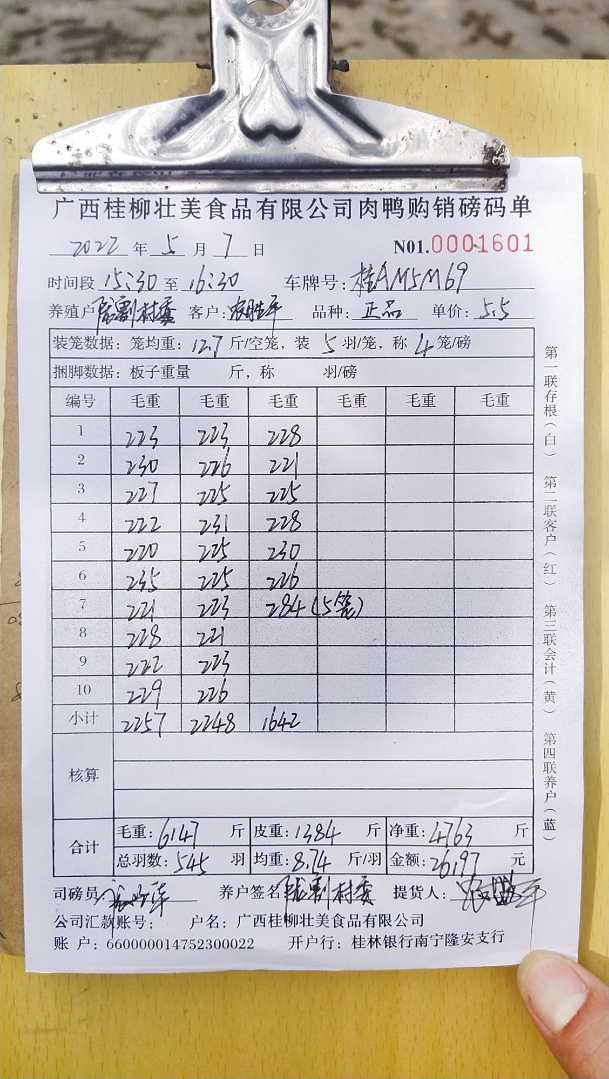 广西桂柳壮美食品有限公司肉鸭购销磅码单
2022 年 5 月 7 日 N01.0001601
时间段 15:30 至 16:30 车牌号: 桂AM5M69
养殖户 村委 客户: 农胜平 品种: 正品 单价: 5.5
装笼数据: 笼均重: 12.7 斤/空笼, 装 5 羽/笼, 称 4 笼/磅
捆脚数据: 板子重量 斤, 称 羽/磅
编号 毛重 毛重 毛重 毛重 毛重 毛重
1 223 223 228
2 230 226 221
3 227 225 225
4 222 231 228
5 220 225 230
6 235 225 226
7 221 223 284 (5笼)
8 228 221
9 222 223
10 229 226
小计 2257 2248 1642
核算
合计 毛重: 6147 斤 皮重: 1384 斤 净重: 4763 斤
总羽数: 545 羽 均重: 8.74 斤/羽 金额: 26197 元
司磅员 养户签名 村委 提货人: 农胜平
公司汇款账号: 户名: 广西桂柳壮美食品有限公司
账 户: 660000014752300022 开户行: 桂林银行南宁隆安支行
第一联存根(白) 第二联客户(红) 第三联会计(黄) 第四联养户(蓝)